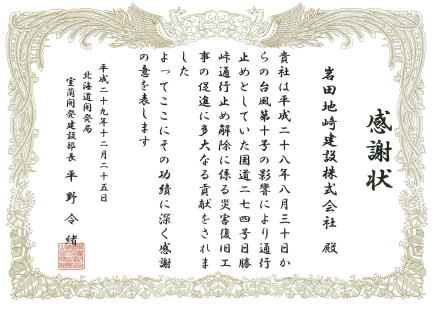 感謝状
岩田地崎建設株式会社 殿
貴社は平成二十八年八月三十日か
らの台風第十号の影響により通行
止めとしていた国道二七四号日勝
峠通行止め解除に係る災害復旧工
事の促進に多大なる貢献をされま
した
よってここにその功績に深く感謝
の意を表します
平成二十九年十二月二十五日
北海道開発局
室蘭開発建設部長 平野令緒